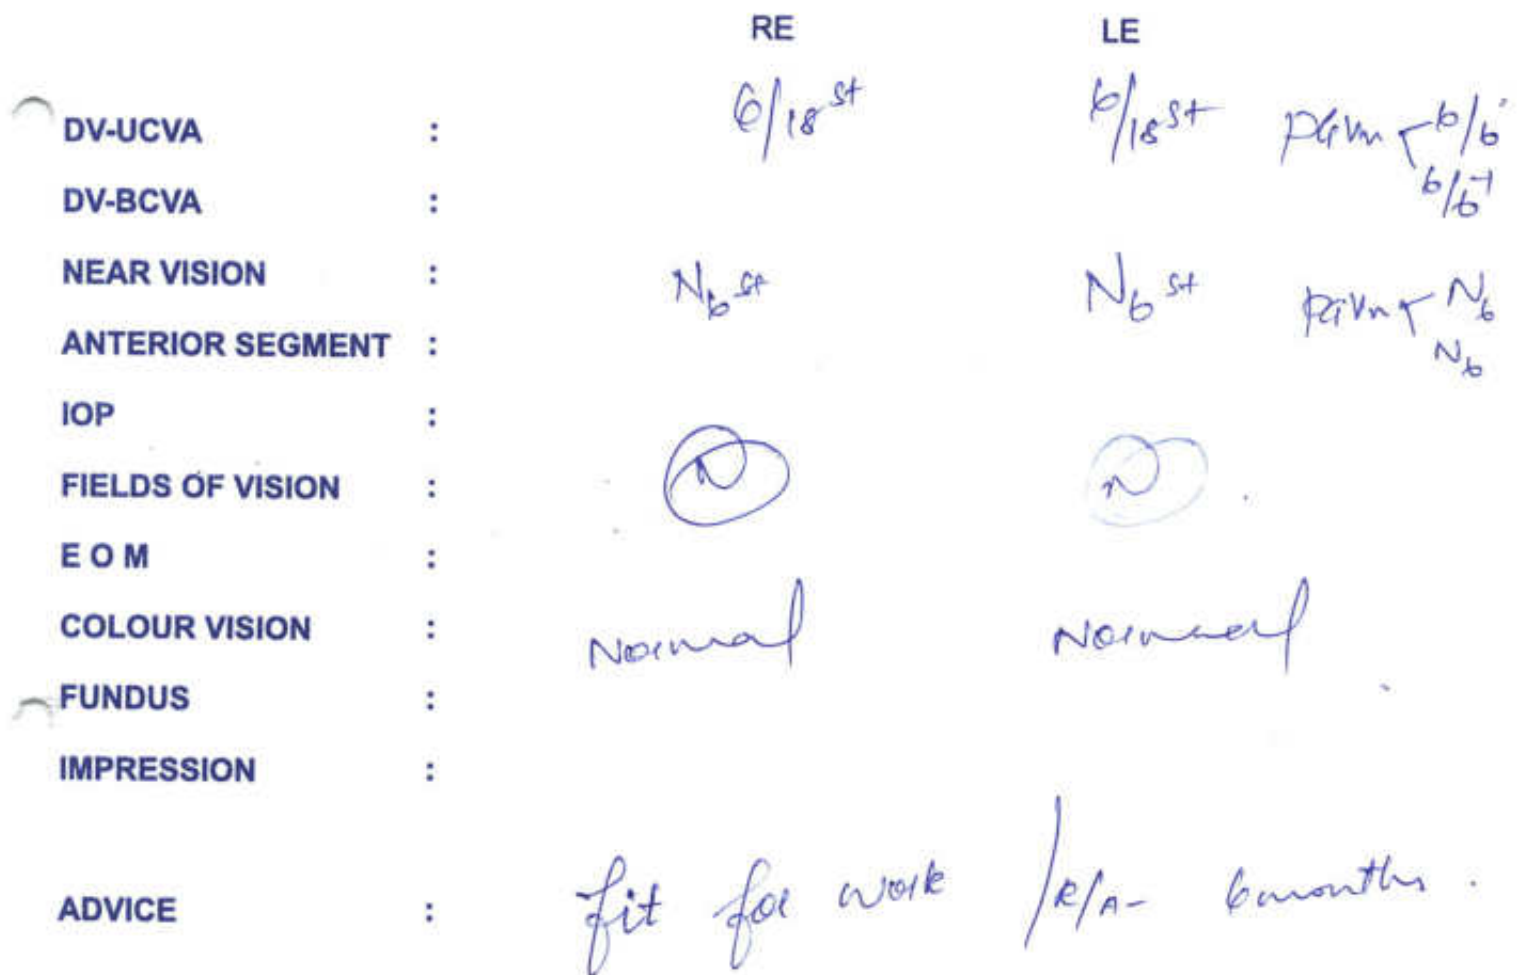 RE LE
DV-UCVA : 6/18 st 6/18 st PGVn 6/6
6/6-1
DV-BCVA :
NEAR VISION : N6 st N6 st PGVn N6
N6
ANTERIOR SEGMENT :
IOP :
FIELDS OF VISION : N N
E O M :
COLOUR VISION : Normal Normal
FUNDUS :
IMPRESSION :
ADVICE : fit for work /R/A- 6 months.